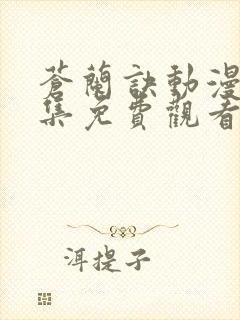 蒼蘭訣動漫
集免費觀看
洱提子